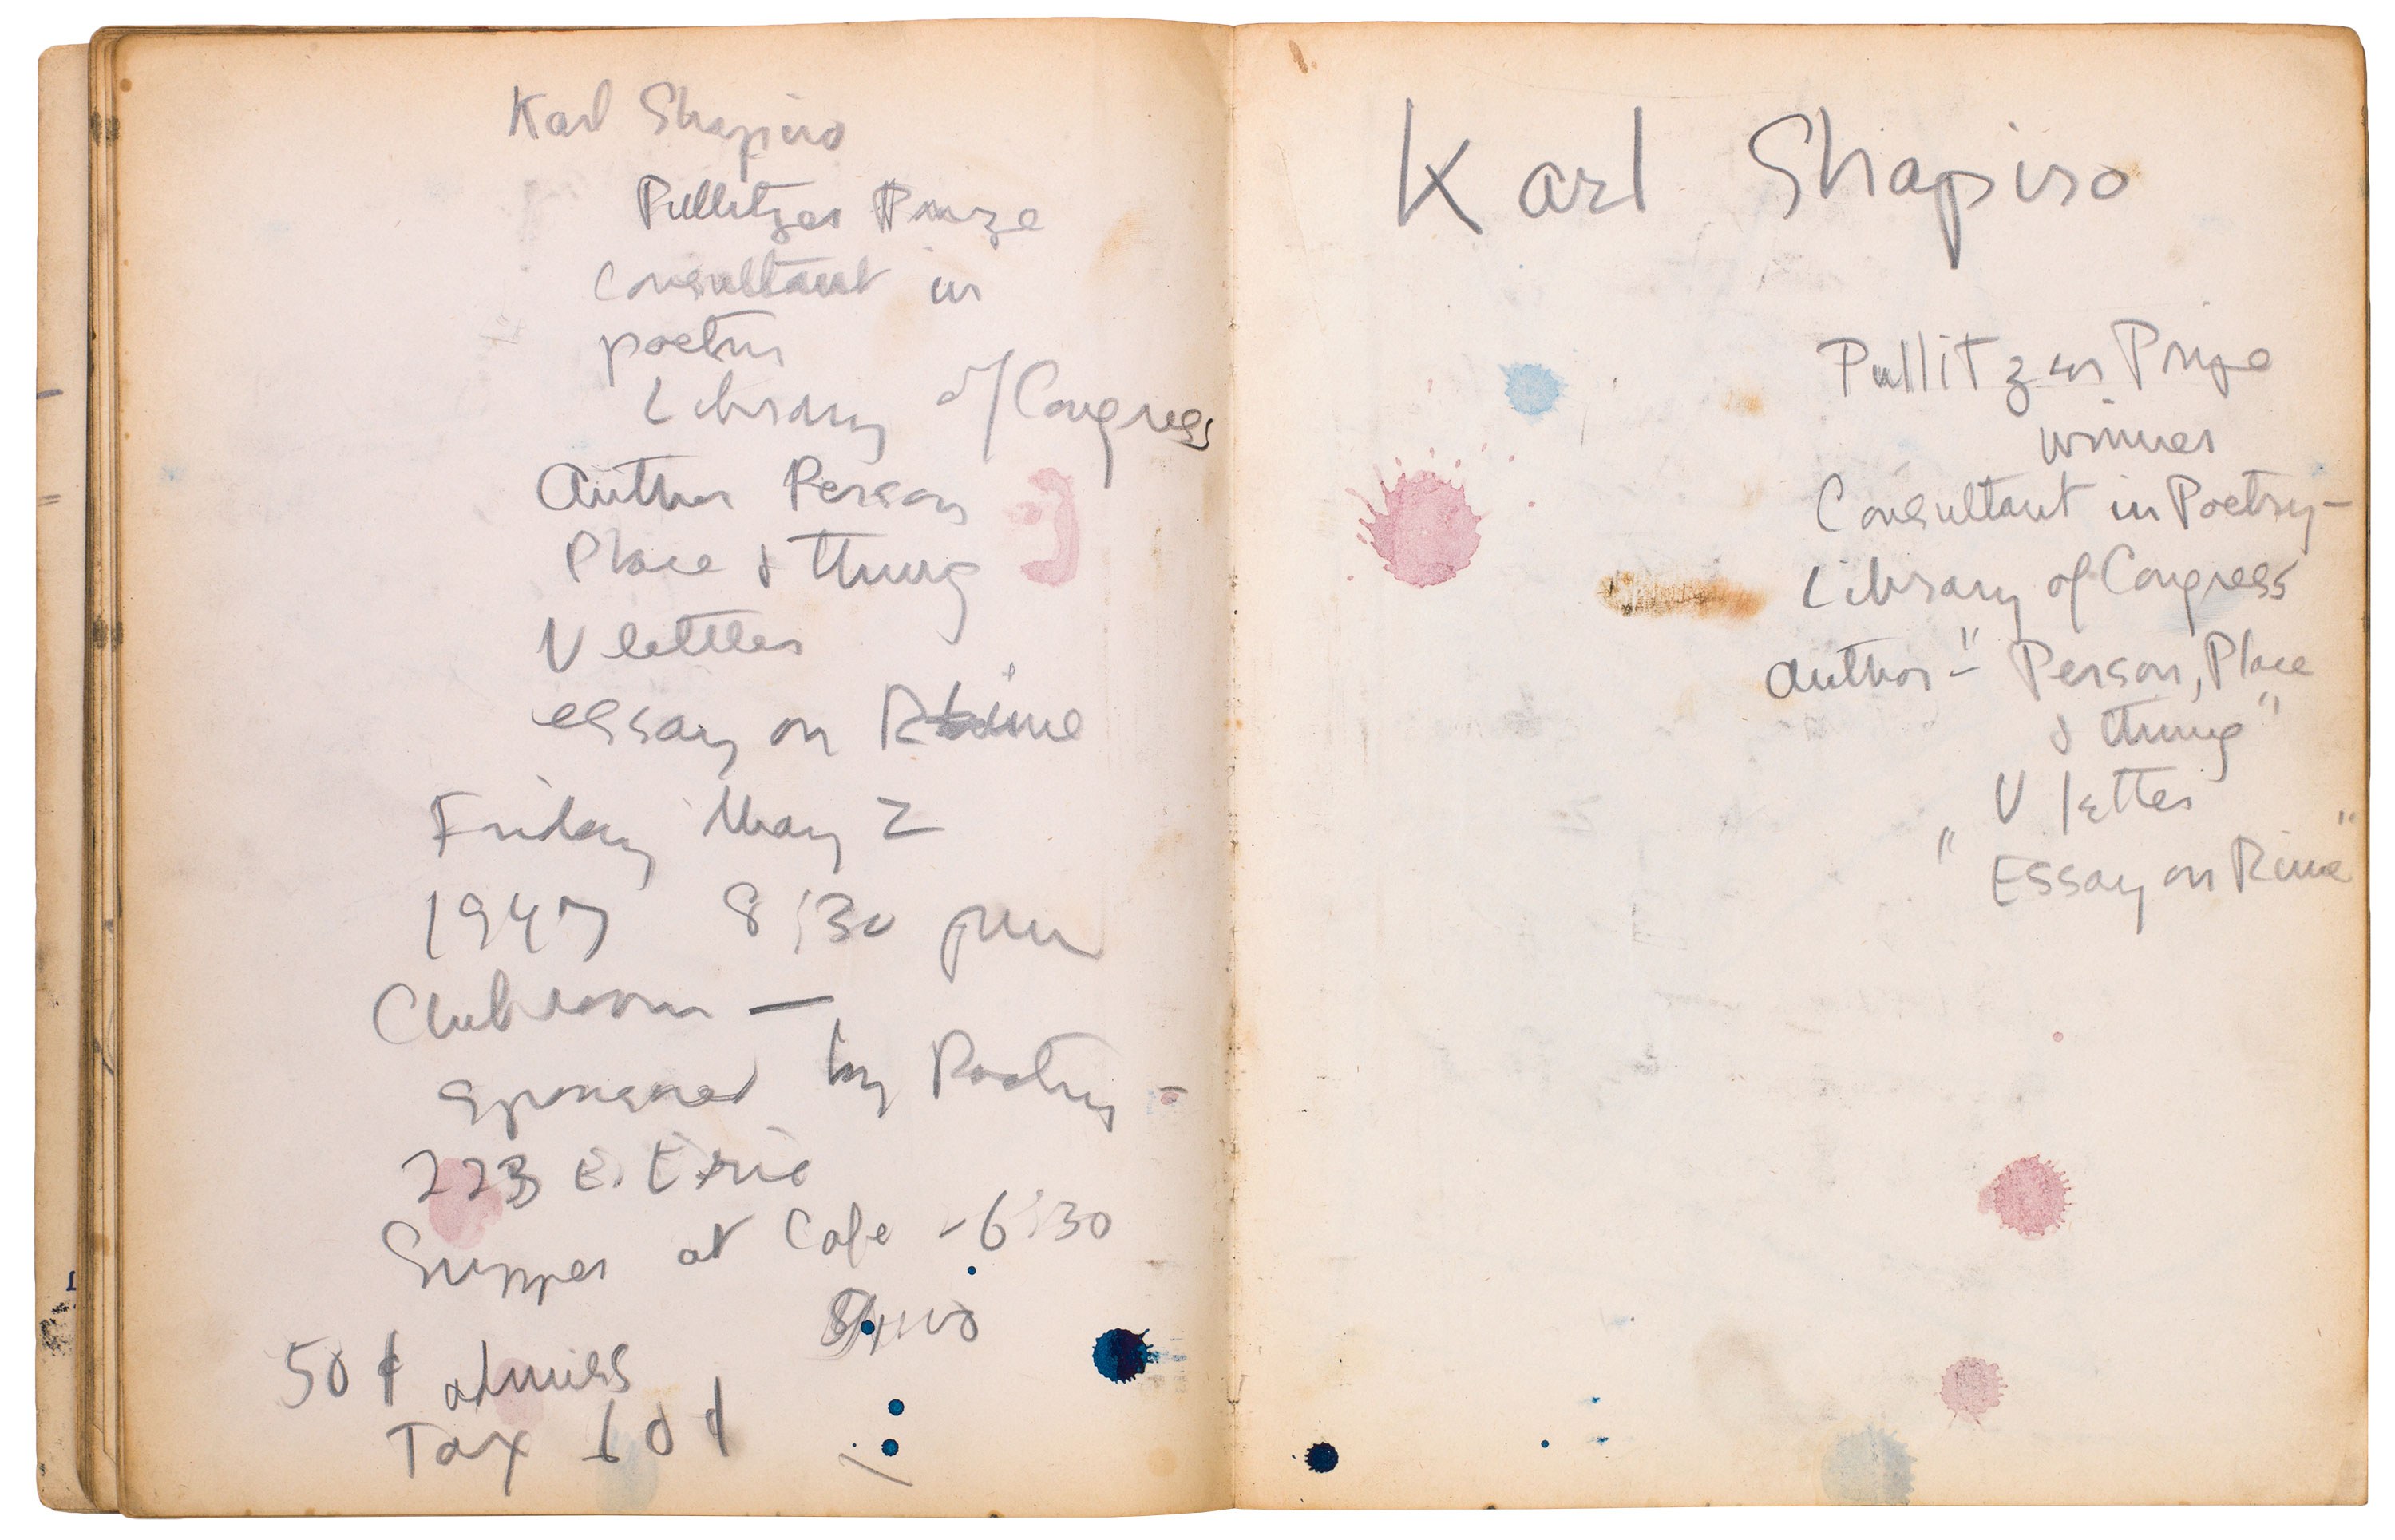 Karl Shapiro
Pullitzer Prize
Consultant in
poetry
Library of Congress
Author Person
Place & thing
V letter
essay on Rhime
Friday May 2
1947 8:30 pm
Clubroom —
sponsored by Poetry -
223 E. Erie
Supper at Cafe - 6:30
50¢ admiss
Tax 10¢
Karl Shapiro
Pullitzer Prize
winner
Consultant in Poetry -
Library of Congress
Author - " Person, Place
& thing "
V letter
" Essay on Rime "